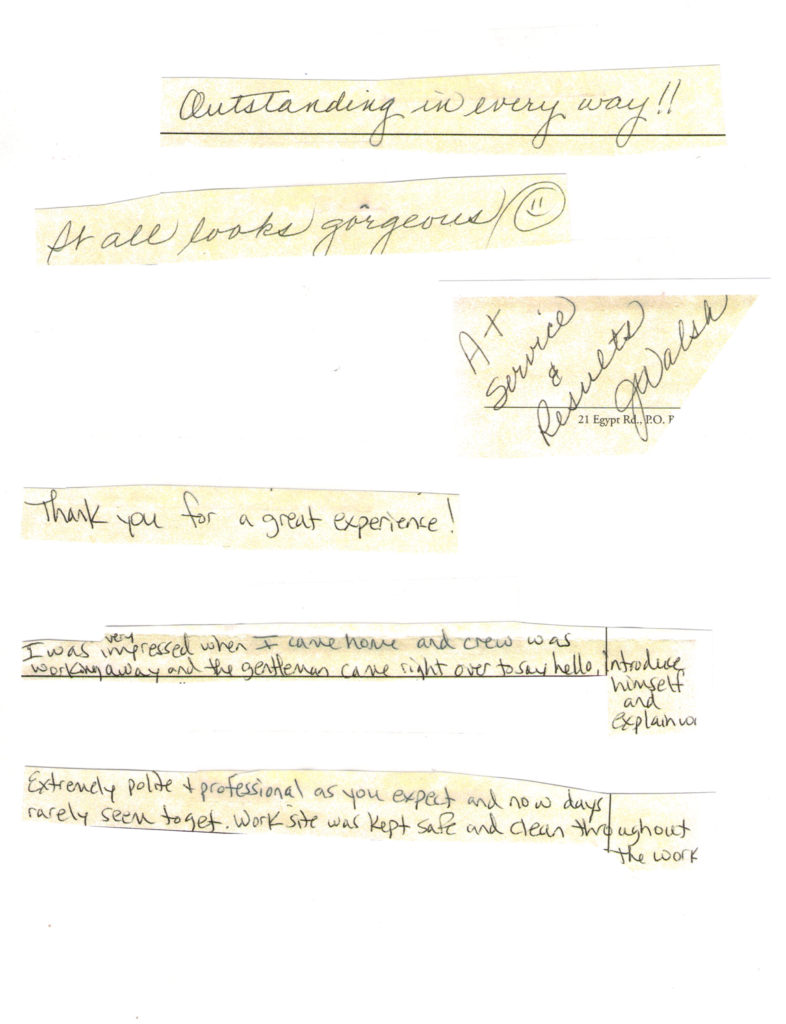 Outstanding in every way!!
It all looks gorgeous
A+
Service
&
Results
JWalsh
21 Egypt Rd., P.O.
Thank you for a great experience!
I was very impressed when I came home and crew was
working away and the gentleman came right over to say hello, introduce
himself
and
explain
Extremely polite + professional as you expect and now days
rarely seem to get. Work site was kept safe and clean throughout
the work